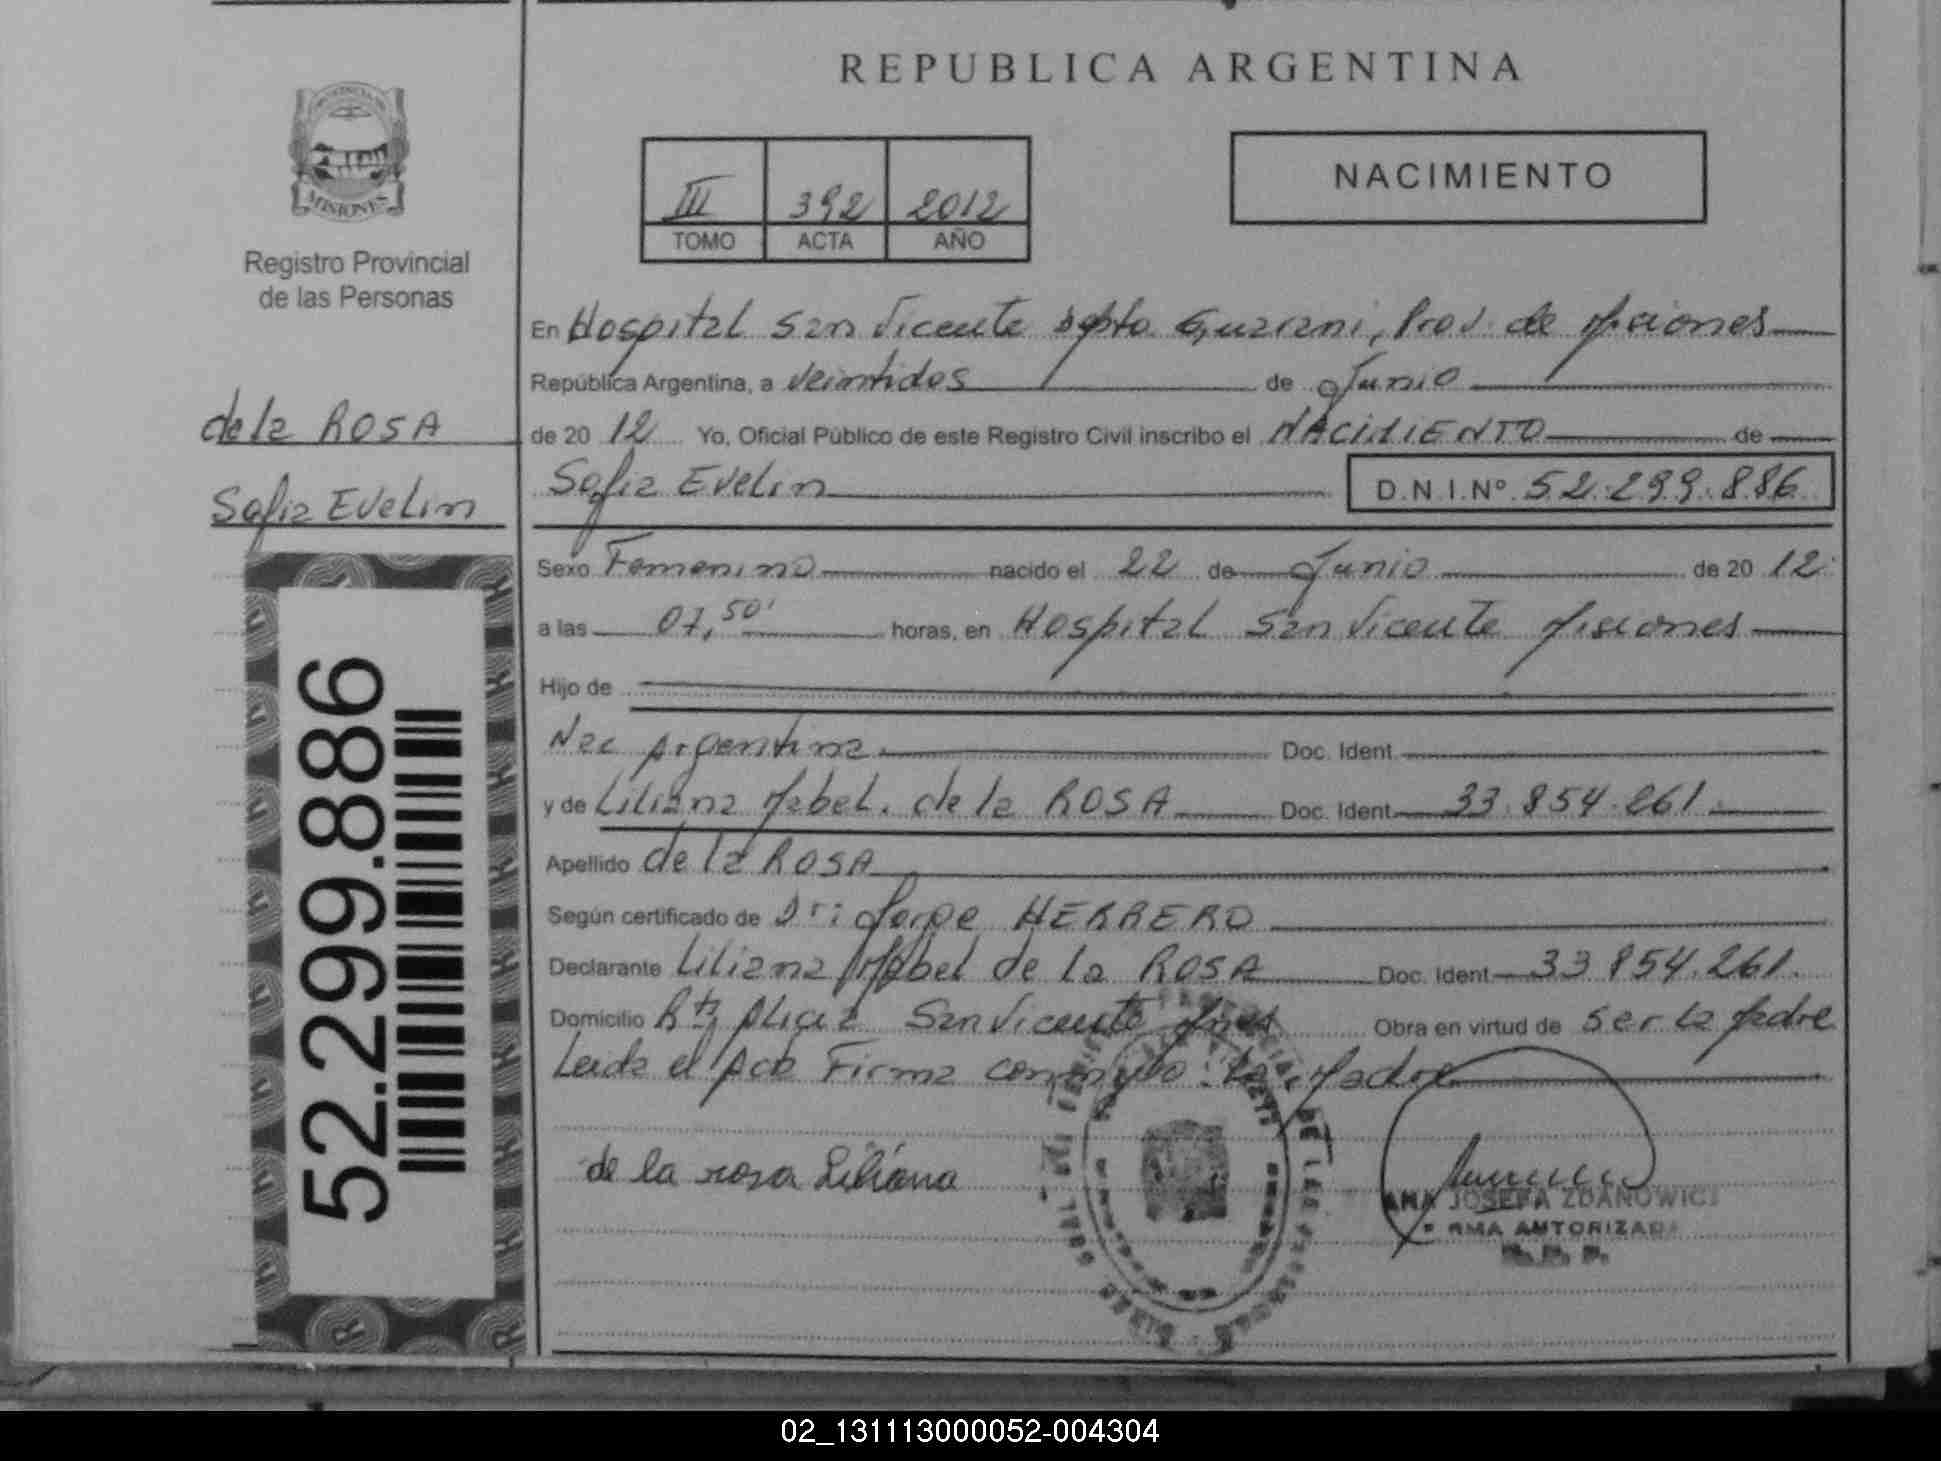 REPUBLICA ARGENTINA
MISIONES
Registro Provincial
de las Personas
III 392 2012
TOMO ACTA AÑO
NACIMIENTO
de la ROSA
Sofia Evelin
52.299.886
En Hospital San Vicente Dpto. Guarani, Prov. de Misiones
República Argentina, a Veintidos de Junio
de 20 12 Yo, Oficial Público de este Registro Civil inscribo el NACIMIENTO de
Sofia Evelin D.N.I.Nº 52.299.886
Sexo Femenino nacido el 22 de Junio de 20 12
a las 07,50' horas, en Hospital San Vicente Misiones
Hijo de
Nac Argentina. Doc. Ident
y de Liliana Mabel. de la ROSA Doc. Ident 33.854.261.
Apellido de la ROSA
Según certificado de Dr: Jorge HERRERO
Declarante Liliana Mabel de la ROSA Doc. Ident 33 854.261.
Domicilio San Vicente Obra en virtud de ser la Madre
Leida el Acta Firma conmigo: La Madre
de la rosa Liliana
ANA JOSEFA ZDANOWICZ
FIRMA AUTORIZADA
02_131113000052-004304